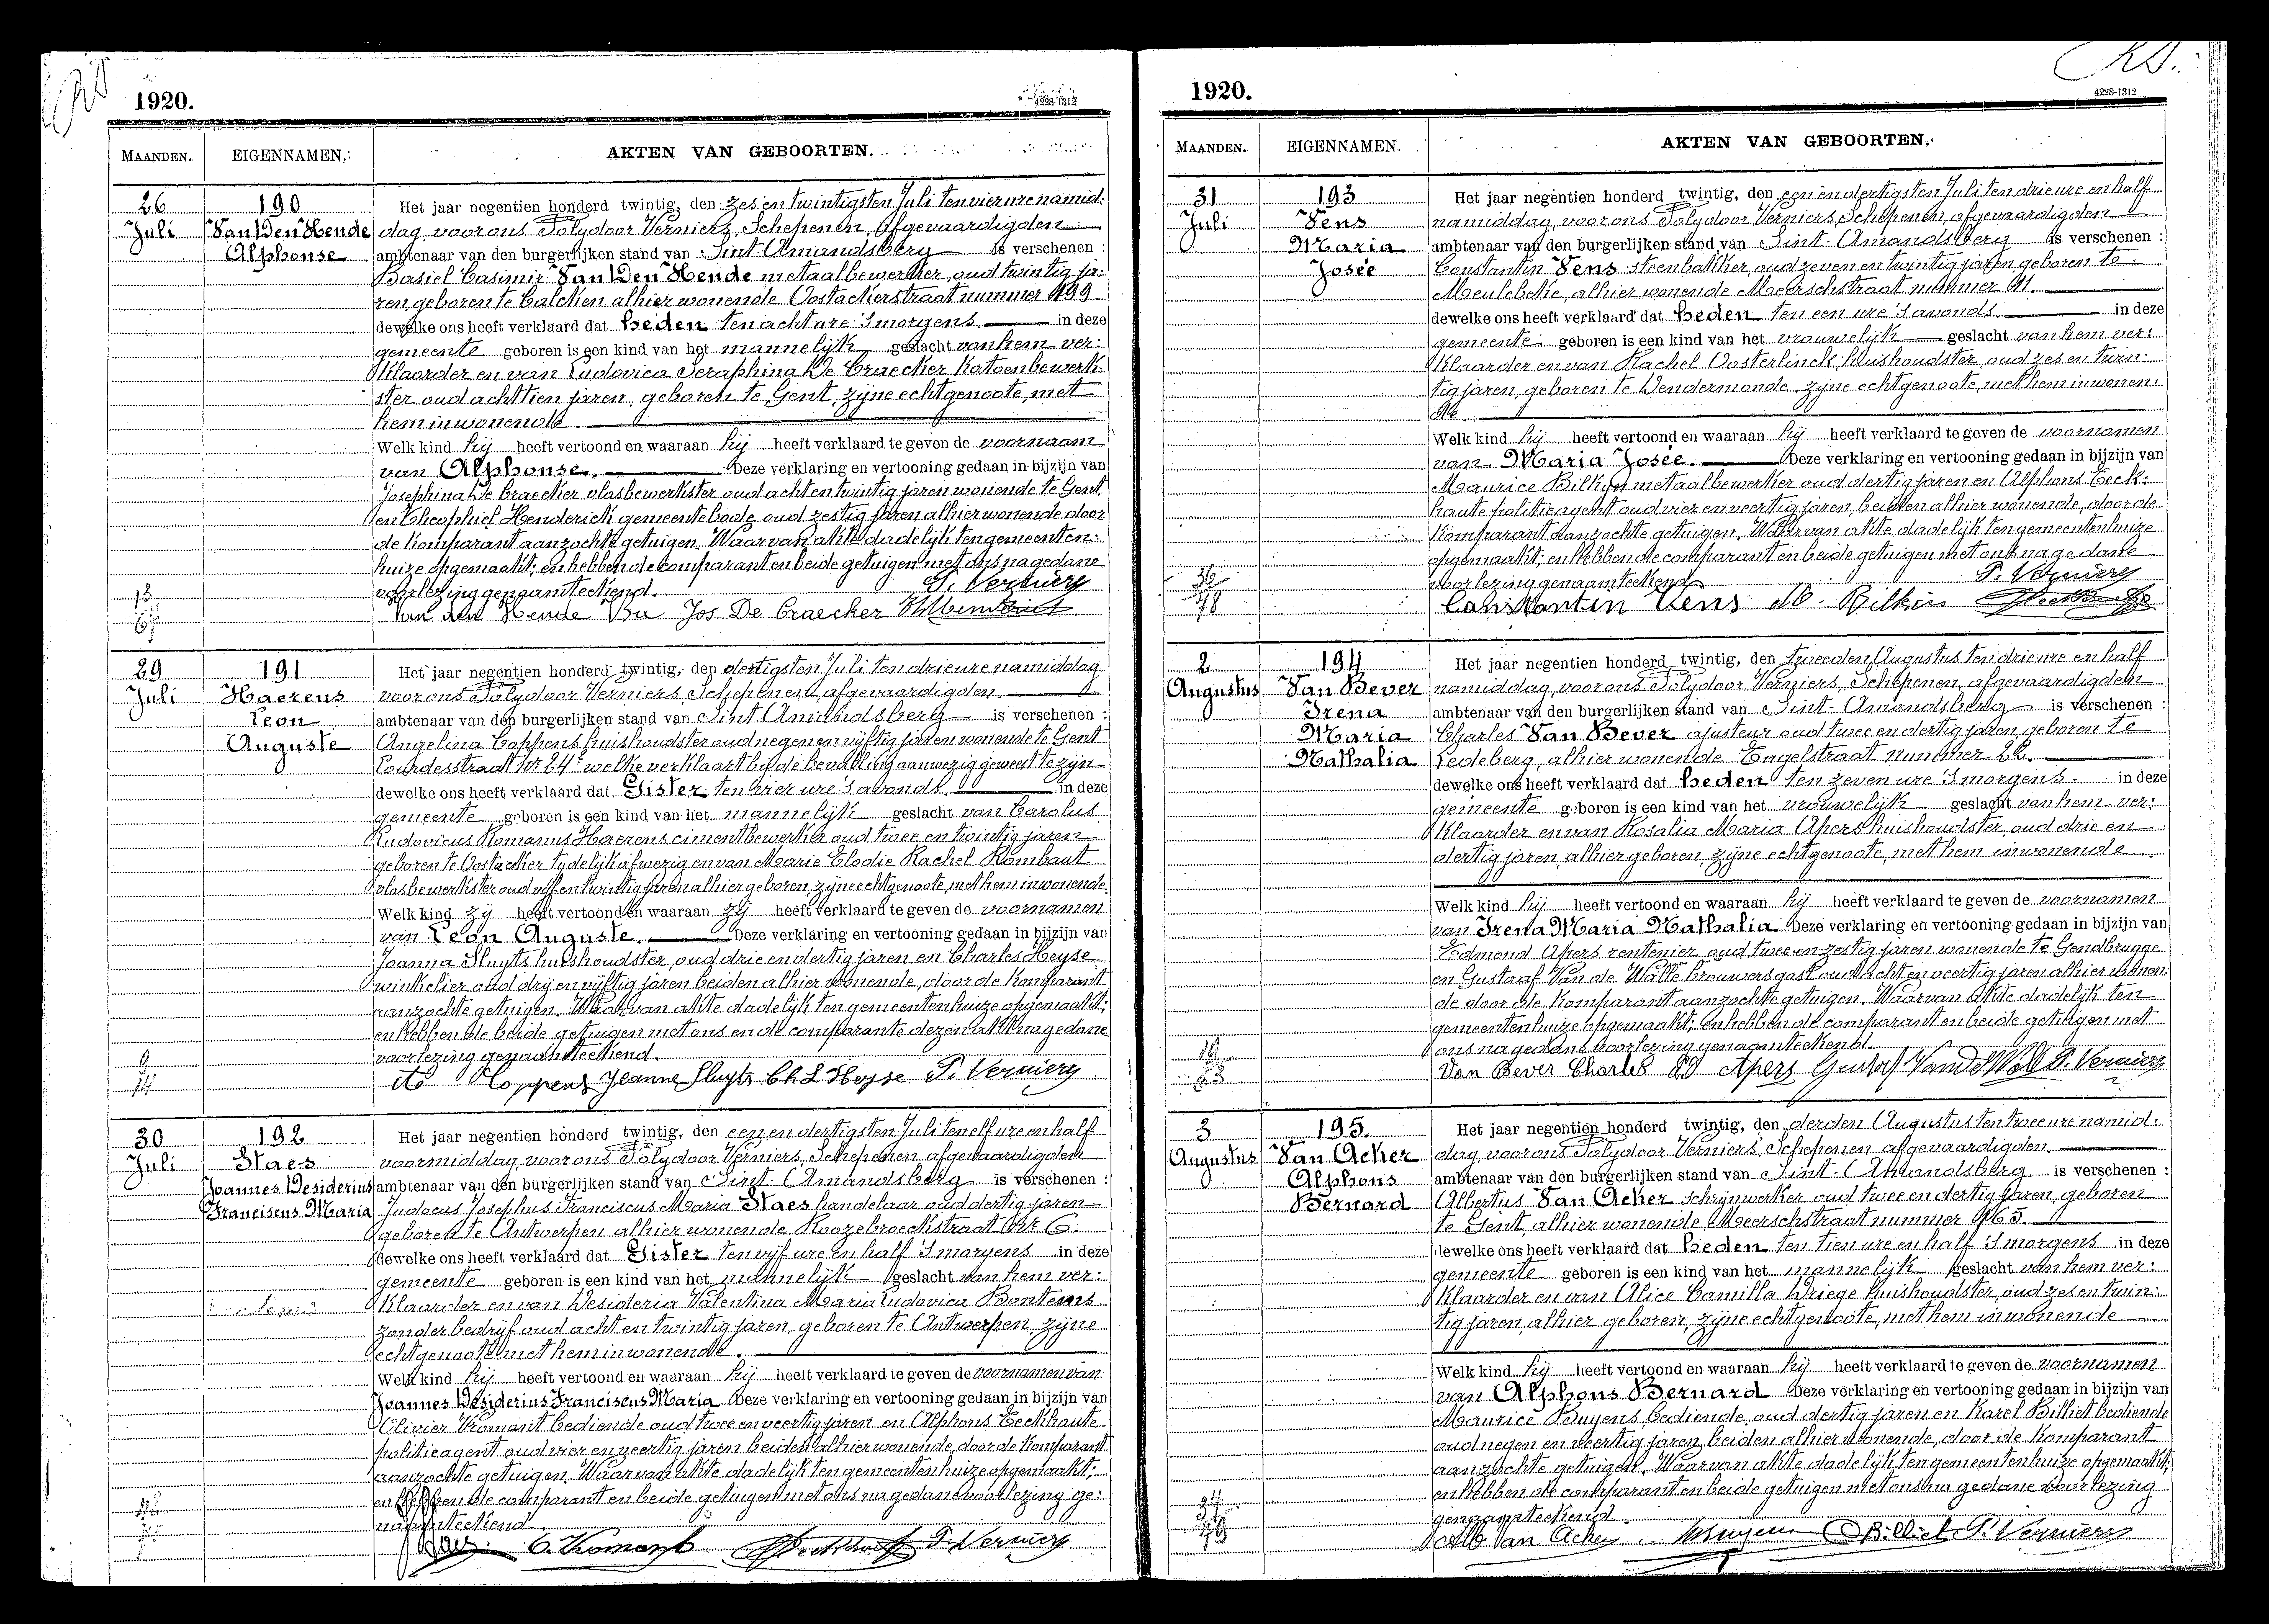 1920.
4228-1312
MAANDEN. EIGENNAMEN. AKTEN VAN GEBOORTEN.
26 190 Het jaar negentien honderd twintig, den zes en twintigsten Juli ten vier ure namid:
Juli Van Den Hende dag, voor ons Polydoor Verniers, Schepenen, afgevaardigden
Alphonse ambtenaar van den burgerlijken stand van Sint-Amandsberg is verschenen :
Basiel Casimir Van Den Hende metaalbewerker, oud twintig ja:
ren, geboren te Calcken alhier wonende Oostackerstraat nummer 199
dewelke ons heeft verklaard dat heden ten acht ure 's morgens in deze
gemeente geboren is een kind van het mannelijk geslacht van hem ver:
klaarder en van Ludovica Seraphina De Craecker katoenbewerk:
ster oud achttien jaren, geboren te Gent, zijne echtgenoote, met
hem inwonende.
Welk kind hij heeft vertoond en waaraan hij heeft verklaard te geven de voornaam
van Alphonse. Deze verklaring en vertooning gedaan in bijzijn van
Josephina De Craecker vlasbewerkster oud acht en twintig jaren wonende te Gent
en Theophiel Henderick gemeentebode oud zestig jaren alhier wonende door
de komparant aanzochte getuigen. Waarvan akte dadelijk ten gemeenten:
huize opgemaakt; en hebben de comparant en beide getuigen met ons na gedane
voorlezing genaamteekend. P. Verniers
13
67
Van den Hende Ba Jos De Craecker
29 191 Het jaar negentien honderd twintig, den dertigsten Juli ten drie ure namiddag
Juli Haerens voor ons Polydoor Verniers, Schepenen, afgevaardigden
Leon ambtenaar van den burgerlijken stand van Sint Amandsberg is verschenen :
Auguste Angelina Coppens huishoudster oud negen en vijftig jaren wonende te Gent
Lourdesstraat Nr 24 welke verklaart bij de bevalling aanwezig geweest te zijn
dewelke ons heeft verklaard dat Gister ten vier ure 's avonds in deze
gemeente geboren is een kind van het mannelijk geslacht van Carolus
Ludovicus Romanus Haerens cimentbewerker oud twee en twintig jaren
geboren te Oostacker tijdelijk afwezig en van Marie Elodie Rachel Rombaut
vlasbewerkster oud vijf en twintig jaren alhier geboren, zijne echtgenoote, met hem inwonende.
Welk kind zij heeft vertoond en waaraan zij heeft verklaard te geven de voornamen
van Leon Auguste. Deze verklaring en vertooning gedaan in bijzijn van
Joanna Sluyts huishoudster, oud drie en dertig jaren en Charles Heyse
winkelier oud drij en vijftig jaren beiden alhier wonende, door de komparant
aanzochte getuigen. Waarvan akte dadelijk ten gemeentenhuize opgemaakt;
en hebben de beide getuigen met ons en de comparante dezen akte na gedane
voorlezing genaamteekend.
9
14
Coppens Jeanne Sluyts Ch L Heyse P. Verniers
30 192 Het jaar negentien honderd twintig, den een en dertigsten Juli ten elf ure en half
Juli Staes voormiddag, voor ons Polydoor Verniers Schepenen afgevaardigden
Joannes Desiderius ambtenaar van den burgerlijken stand van Sint Amandsberg is verschenen :
Franciscus Maria Judocus Josephus Franciscus Maria Staes handelaar oud dertig jaren
geboren te Antwerpen alhier wonende Roozebroeckstraat Nr 6.
dewelke ons heeft verklaard dat Gister ten vijf ure en half 's morgens in deze
gemeente geboren is een kind van het mannelijk geslacht van hem ver:
klaarder en van Desideria Valentina Maria Ludovica Bontems
zonder bedrijf oud acht en twintig jaren, geboren te Antwerpen, zijne
echtgenoote met hem inwonende.
Welk kind hij heeft vertoond en waaraan hij heeft verklaard te geven de voornamen van
Joannes Desiderius Franciscus Maria Deze verklaring en vertooning gedaan in bijzijn van
Olivier Kromant bediende oud twee en veertig jaren en Alphons Eeckhaute
politieagent oud vier en veertig jaren beiden alhier wonende, door de komparant
aanzochte getuigen. Waarvan akte dadelijk ten gemeentenhuize opgemaakt;
en hebben de comparant en beide getuigen met ons na gedane voorlezing ge:
naamteekend
Staes O. Kromant P. Verniers
1920.
4228-1312
MAANDEN. EIGENNAMEN. AKTEN VAN GEBOORTEN.
31 193 Het jaar negentien honderd twintig, den een en dertigsten Juli ten drie ure en half
Juli Vens namiddag, voor ons Polydoor Verniers, Schepenen, afgevaardigden
Maria ambtenaar van den burgerlijken stand van Sint-Amandsberg is verschenen :
Josée Constantin Vens steenbakker, oud zeven en twintig jaren geboren te
Meulebeke, alhier wonende Meerschstraat nummer 11.
dewelke ons heeft verklaard dat heden ten een ure 's avonds in deze
gemeente geboren is een kind van het vrouwelijk geslacht van hem ver:
klaarder en van Rachel Oosterlinck, huishoudster, oud zes en twin:
tig jaren, geboren te Dendermonde, zijne echtgenoote, met hem inwonen:
de
Welk kind hij heeft vertoond en waaraan hij heeft verklaard te geven de voornamen
van Maria Josée. Deze verklaring en vertooning gedaan in bijzijn van
Maurice Bilkin metaalbewerker oud dertig jaren en Alphons Eeck:
haute politieagent oud vier en veertig jaren, beiden alhier wonende, door de
komparant aanzochte getuigen. Waarvan akte dadelijk ten gemeentenhuize
opgemaakt; en hebben de comparant en beide getuigen met ons na gedane
voorlezing genaamteekend P. Verniers
36
78
Constantin Vens M. Bilkin
2 194 Het jaar negentien honderd twintig, den tweeden Augustus ten drie ure en half
Augustus Van Bever namiddag, voor ons Polydoor Verniers, Schepenen, afgevaardigden
Irena ambtenaar van den burgerlijken stand van Sint-Amandsberg is verschenen :
Maria Charles Van Bever ajusteur oud twee en dertig jaren, geboren te
Nathalia Ledeberg, alhier wonende Engelstraat nummer 22.
dewelke ons heeft verklaard dat heden ten zeven ure 's morgens. in deze
gemeente geboren is een kind van het vrouwelijk geslacht van hem ver:
klaarder en van Rosalia Maria Apers huishoudster, oud drie en
dertig jaren, alhier geboren, zijne echtgenoote, met hem inwonende
Welk kind hij heeft vertoond en waaraan hij heeft verklaard te geven de voornamen
van Irena Maria Nathalia Deze verklaring en vertooning gedaan in bijzijn van
Edmond Apers rentenier, oud twee en zestig jaren wonende te Gendbrugge
en Gustaaf Van de Walle brouwersgast oud acht en veertig jaren alhier wonen:
de door de komparant aanzochte getuigen. Waarvan akte dadelijk ten
gemeentenhuize opgemaakt; en hebben de comparant en beide getuigen met
ons na gedane voorlezing genaamteekend.
19
63
Van Bever Charles Ed Apers Gustaf Van d Wall P. Verniers
3 195. Het jaar negentien honderd twintig, den derden Augustus ten twee ure namid:
Augustus Van Acker dag, voor ons Polydoor Verniers, Schepenen afgevaardigden.
Alphons ambtenaar van den burgerlijken stand van Sint-Amandsberg is verschenen :
Bernard Albertus Van Acker schrijnwerker oud twee en dertig jaren, geboren
te Gent, alhier wonende, Meerschstraat nummer 165.
dewelke ons heeft verklaard dat heden ten tien ure en half 's morgens in deze
gemeente geboren is een kind van het mannelijk geslacht van hem ver:
klaarder en van Alice Camilla Driege huishoudster, oud zes en twin:
tig jaren, alhier geboren, zijne echtgenoote, met hem inwonende
Welk kind hij heeft vertoond en waaraan hij heeft verklaard te geven de voornamen
van Alphons Bernard Deze verklaring en vertooning gedaan in bijzijn van
Maurice Buyens bediende, oud dertig jaren en Karel Billiet bediende
oud negen en veertig jaren, beiden alhier wonende, door de komparant
aanzochte getuigen. Waarvan akte dadelijk ten gemeentenhuize opgemaakt;
en hebben de comparant en beide getuigen met ons na gedane voorlezing
genaamteekend.
Alb. Van Acker Billiet P. Verniers